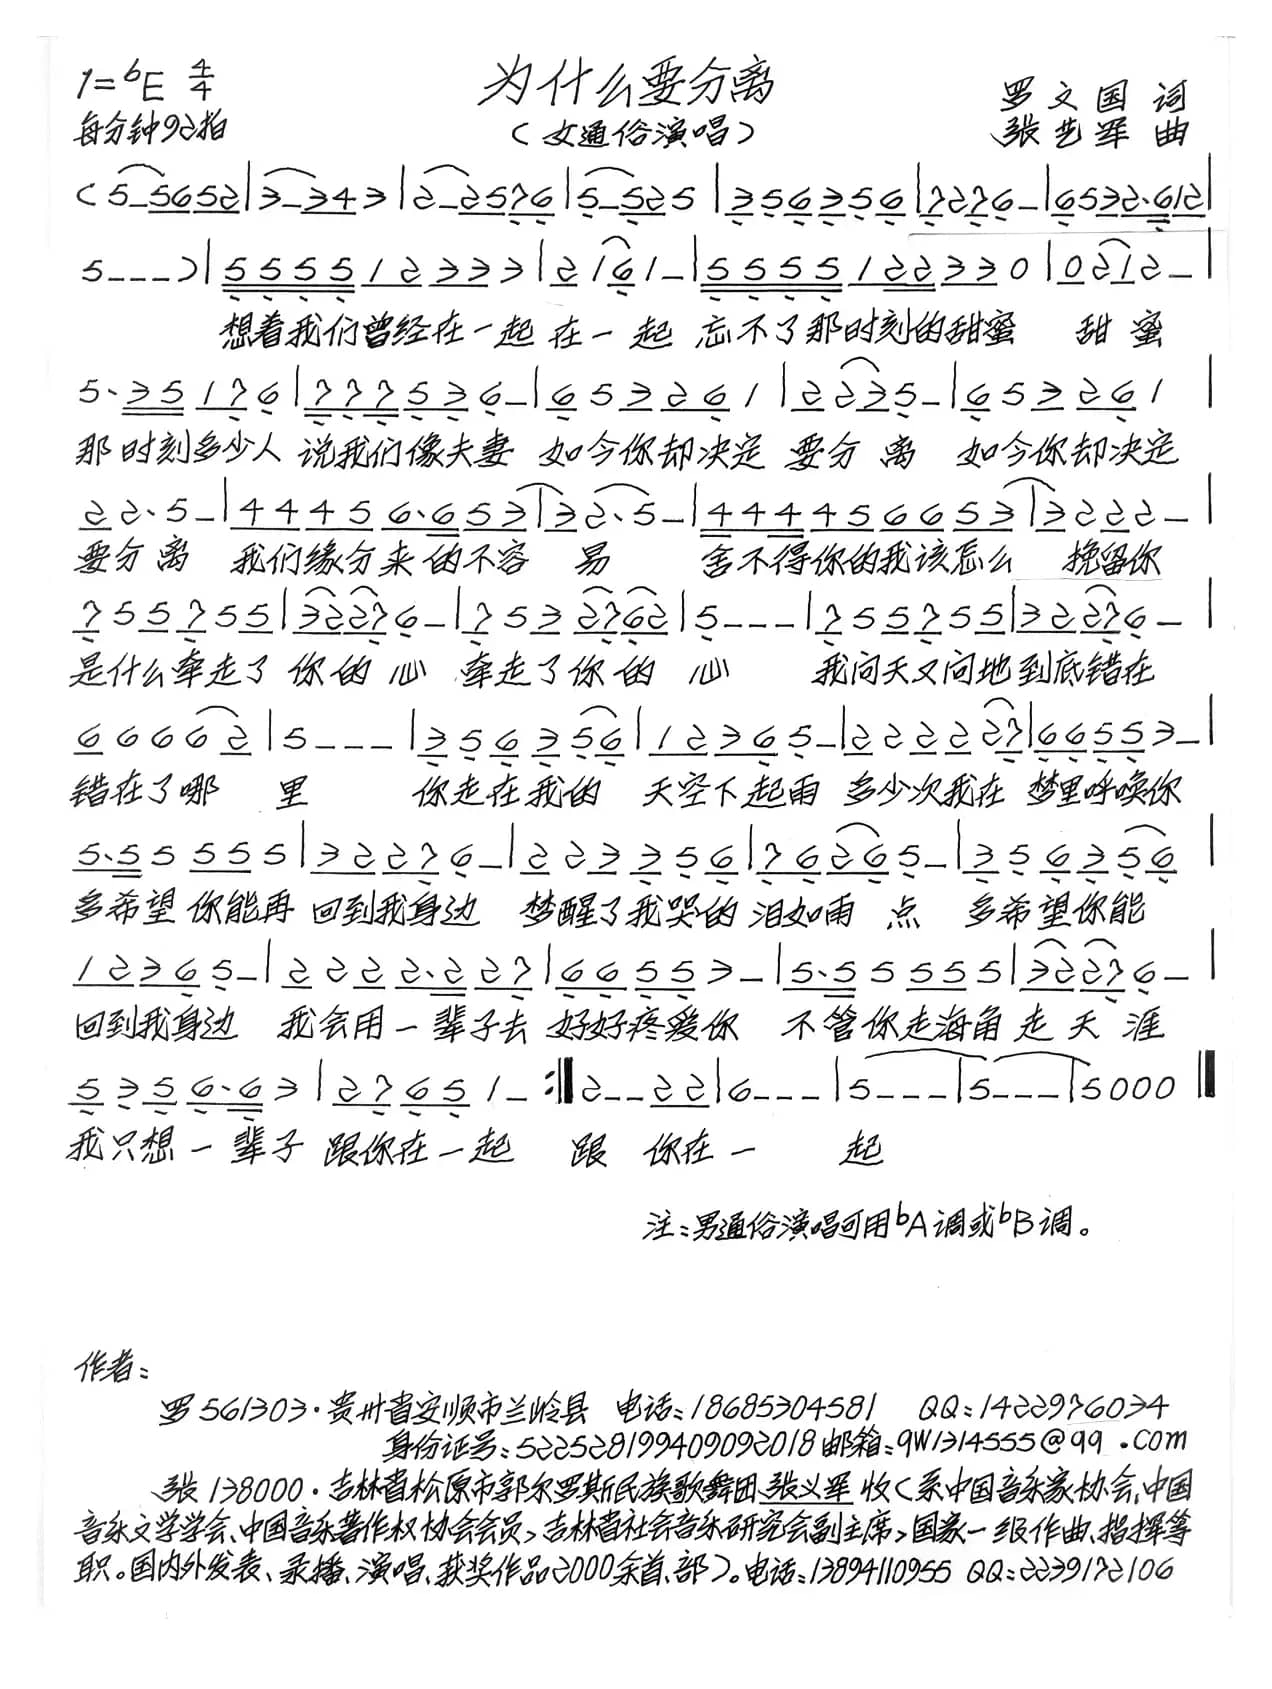 1=ᵇE 4/4
为什么要分离
罗文国 词
每分钟92拍
(女通俗演唱)
张艺军 曲
(5-5652|3-343|2-2576|5-525|356356|7276-|6532·612|
5---)|555512333|2161-|5555122330|0212-|
想着我们曾经在一起在一起 忘不了那时刻的甜蜜 甜蜜
5·35176|777536-|653261|2235-|653261|
那时刻多少人 说我们像夫妻 如今你却决定 要分离 如今你却决定
22·5-|44456·653|32·5-|444456653|3222-|
要分离 我们缘分来的不容易 舍不得你的我该怎么 挽留你
755755|32276-|7532762|5---|755755|32276-|
是什么牵走了 你的心 牵走了你的心 我问天又问地到底错在
66662|5---|356356|12365-|2222227|66553-|
错在了哪里 你走在我的 天空下起雨 多少次我在 梦里呼唤你
5·55555|32276-|2233356|76265-|356356|
多希望你能再 回到我身边 梦醒了我哭的 泪如雨点 多希望你能
12365-|2222·227|66553-|5·55555|32276-|
回到我身边 我会用一辈子去 好好疼爱你 不管你走海角走天涯
5356·63|27651-:‖2--22|6---|5---|5---|5000‖
我只想一辈子 跟你在一起 跟 你在一 起
注:男通俗演唱可用ᵇA调或ᵇB调。
作者:
罗561303·贵州省安顺市兰岭县 电话:18685304581 QQ:1422976034
身份证号:522528199409092018邮箱:9W1314555@99.com
张138000·吉林省松原市郭尔罗斯民族歌舞团张义军收(系中国音乐家协会、中国
音乐文学学会、中国音乐著作权协会会员,吉林省社会音乐研究会副主席,国家一级作曲、指挥等
职。国内外发表、录播、演唱、获奖作品2000余首、部)。电话:13894110955 QQ:2239172106